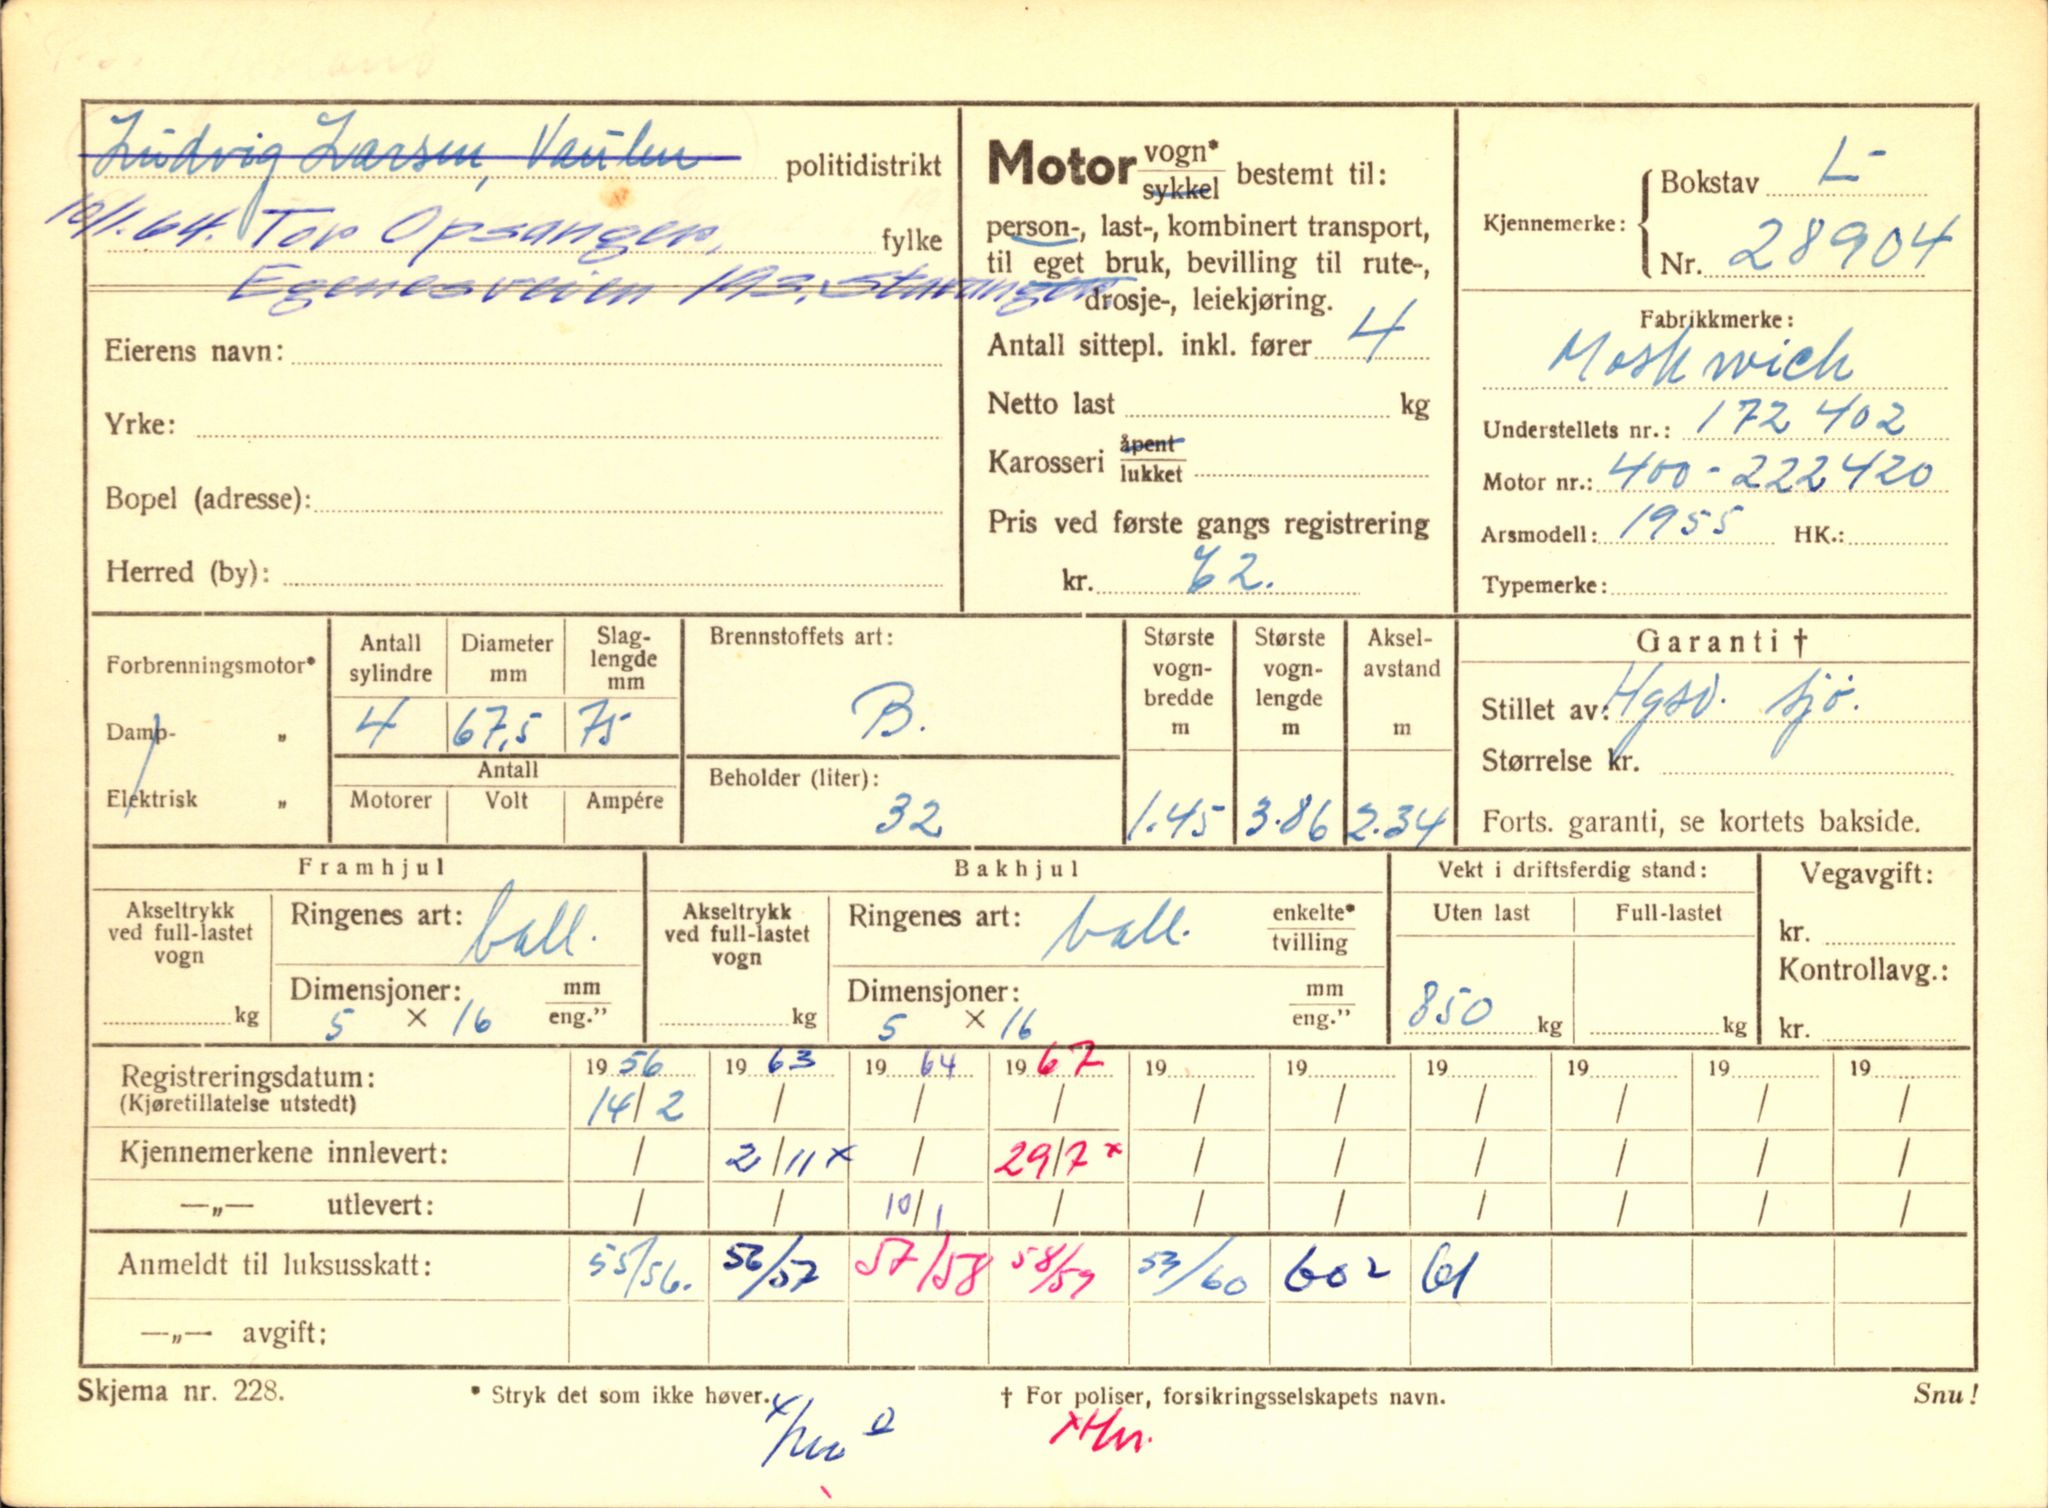 Ludvig Larsen, Vaulen politidistrikt
10/1.64. Tor Opsanger, fylke
Egenesveien 19a, Stavanger
Eierens navn:
Yrke:
Bopel (adresse):
Herred (by):
Motor vogn* sykkel bestemt til:
person-, last-, kombinert transport,
til eget bruk, bevilling til rute-,
drosje-, leiekjøring.
Antall sittepl. inkl. fører 4
Netto last kg
Karosseri åpent lukket
Pris ved første gangs registrering
kr. 62.
Kjennemerke: Bokstav L-
Nr. 28904
Fabrikkmerke:
Moskwich
Understellets nr.: 172 402
Motor nr.: 400-222420
Arsmodell: 1955 HK.:
Typemerke:
Forbrenningsmotor*
Damp- „
Elektrisk „
Antall sylindre Diameter mm Slag-lengde mm
4 67,5 75
Antall
Motorer Volt Ampére
Brennstoffets art:
B.
Beholder (liter):
32
Største vogn-bredde m
1.45
Største vogn-lengde m
3.86
Aksel-avstand m
2.34
Garanti †
Stillet av: Hgsd. Sjø.
Størrelse kr.
Forts. garanti, se kortets bakside.
Framhjul
Akseltrykk ved full-lastet vogn
kg
Ringenes art: ball.
Dimensjoner: mm eng.”
5 × 16
Bakhjul
Akseltrykk ved full-lastet vogn
kg
Ringenes art: ball. enkelte* tvilling
Dimensjoner: mm eng.”
5 × 16
Vekt i driftsferdig stand:
Uten last Full-lastet
850 kg kg
Vegavgift:
kr.
Kontrollavg.:
kr.
Registreringsdatum: 1956 1963 1964 1967 19 19 19 19 19 19
(Kjøretillatelse utstedt) 14/2 / / / / / / / / /
Kjennemerkene innlevert: / 2/11 x / 29/7 x / / / / / /
—„— utlevert: / / 10/1 / / / / / / /
Anmeldt til luksusskatt: 55/56. 56/57 57/58 58/59 59/60 60 2 61
—„— avgift:
Skjema nr. 228. * Stryk det som ikke høver. † For poliser, forsikringsselskapets navn. Snu!